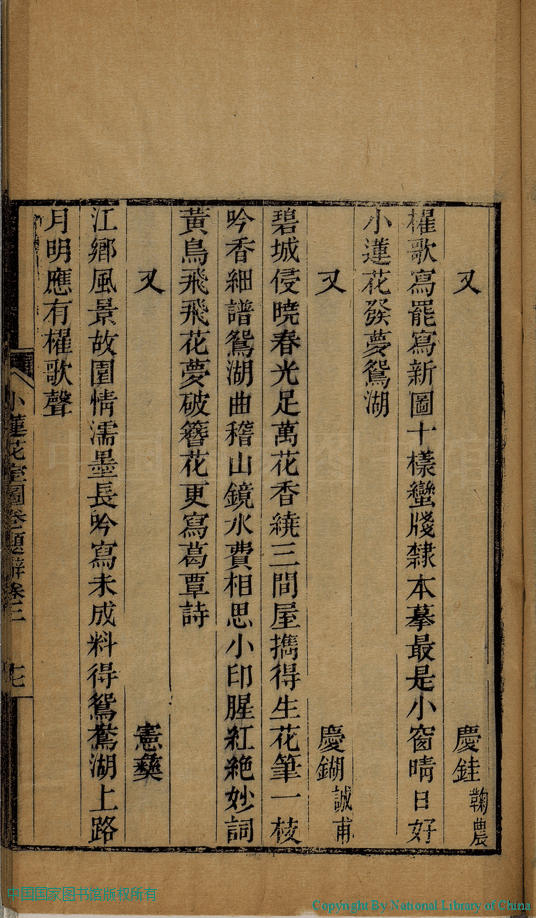 又 慶銈 鞠農
櫂歌寫罷寫新圖十樣蠻牋隸本摹最是小窗晴日好
小蓮花發夢鴛湖
又 慶鍸 誠甫
碧城侵曉春光足萬花香繞三間屋擕得生花筆一枝
吟香細譜鴛湖曲稽山鏡水費相思小印腥紅絶妙詞
黃鳥飛飛花夢破簪花更寫葛覃詩
又 憲彝
江鄉風景故園情濡墨長吟寫未成料得鴛鴦湖上路
月明應有櫂歌聲
小蓮花室圖卷題辭卷二 七
中国国家图书馆
中国国家图书馆版权所有
Copyright By National Library of China